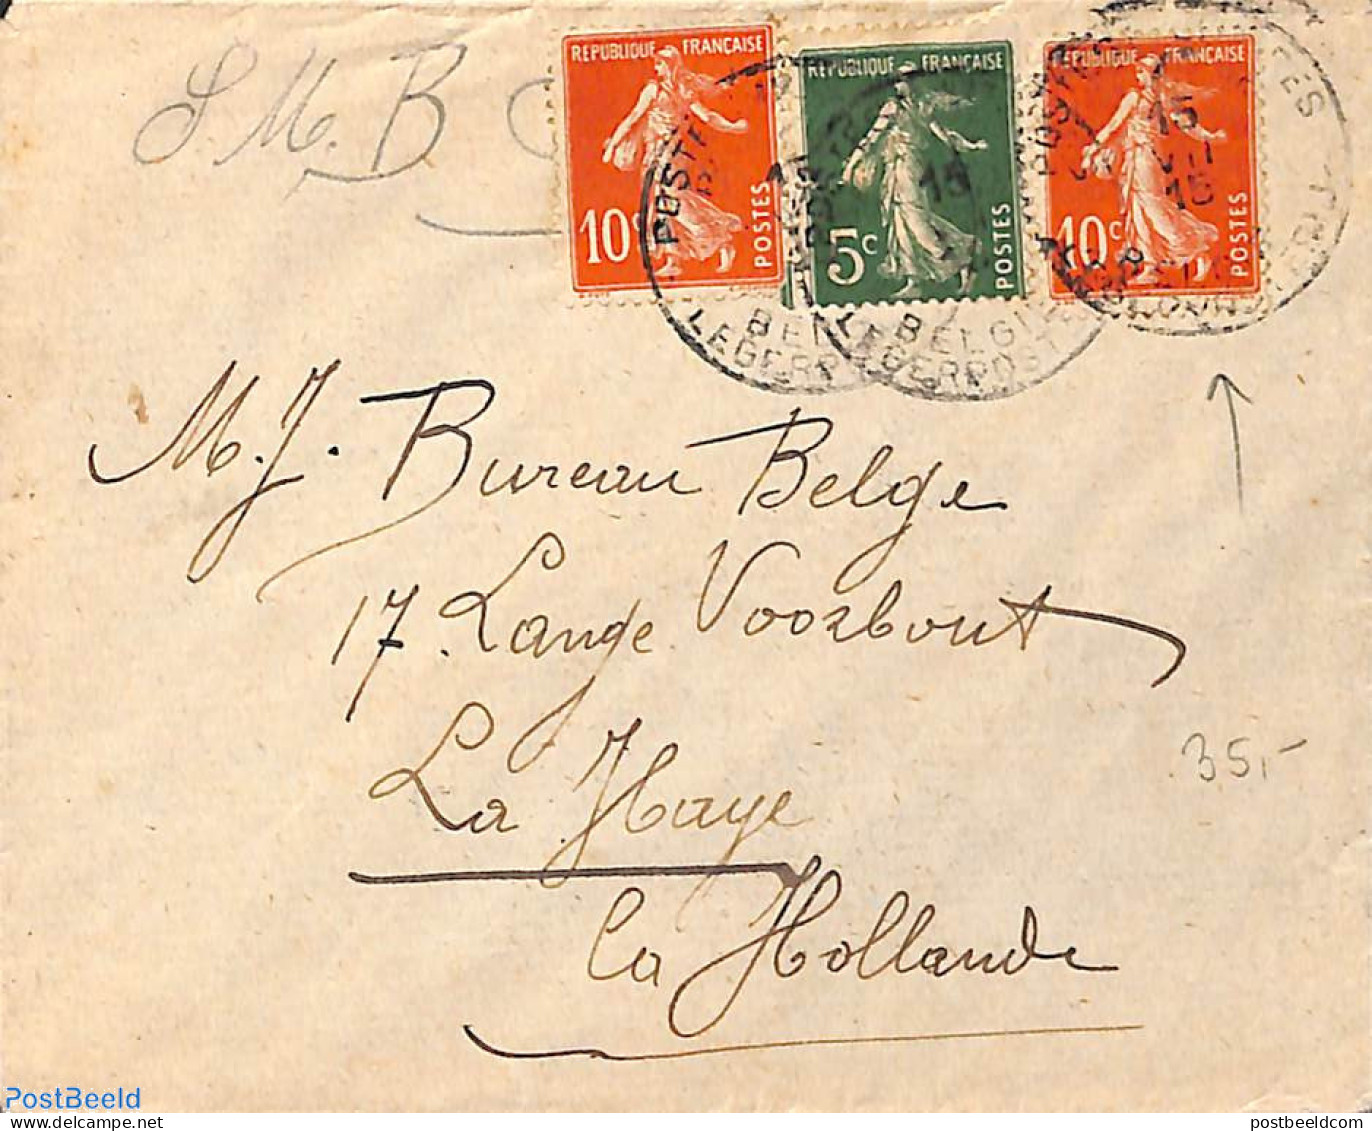 S.M.B
REPUBLIQUE FRANÇAISE
10c
POSTES
REPUBLIQUE FRANÇAISE
5c
POSTES
REPUBLIQUE FRANÇAISE
10c
POSTES
15
15
VII
15
BELGIË
LEGERPOST
M.J. Bureau Belge
17 Lange Voorbout
La Haye
la Hollande
35,-
PostBeeld
postbeeldcom